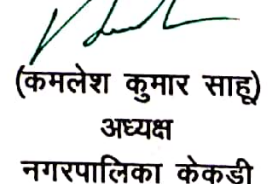 (कमलेश कुमार साहू)
अध्यक्ष
नगरपालिका केकडी